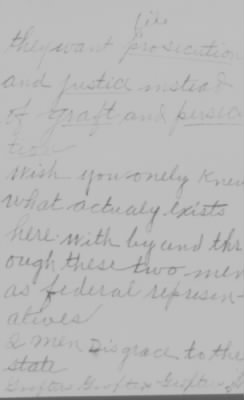 they want prosecution
and justice instead
of graft and persecu
tion
Wish you onely knew
what actualy exists
here with by and thr
ough these two men
as federal represen-
atives
2 men Disgrace to the
state
Grafters Grafters Grafters